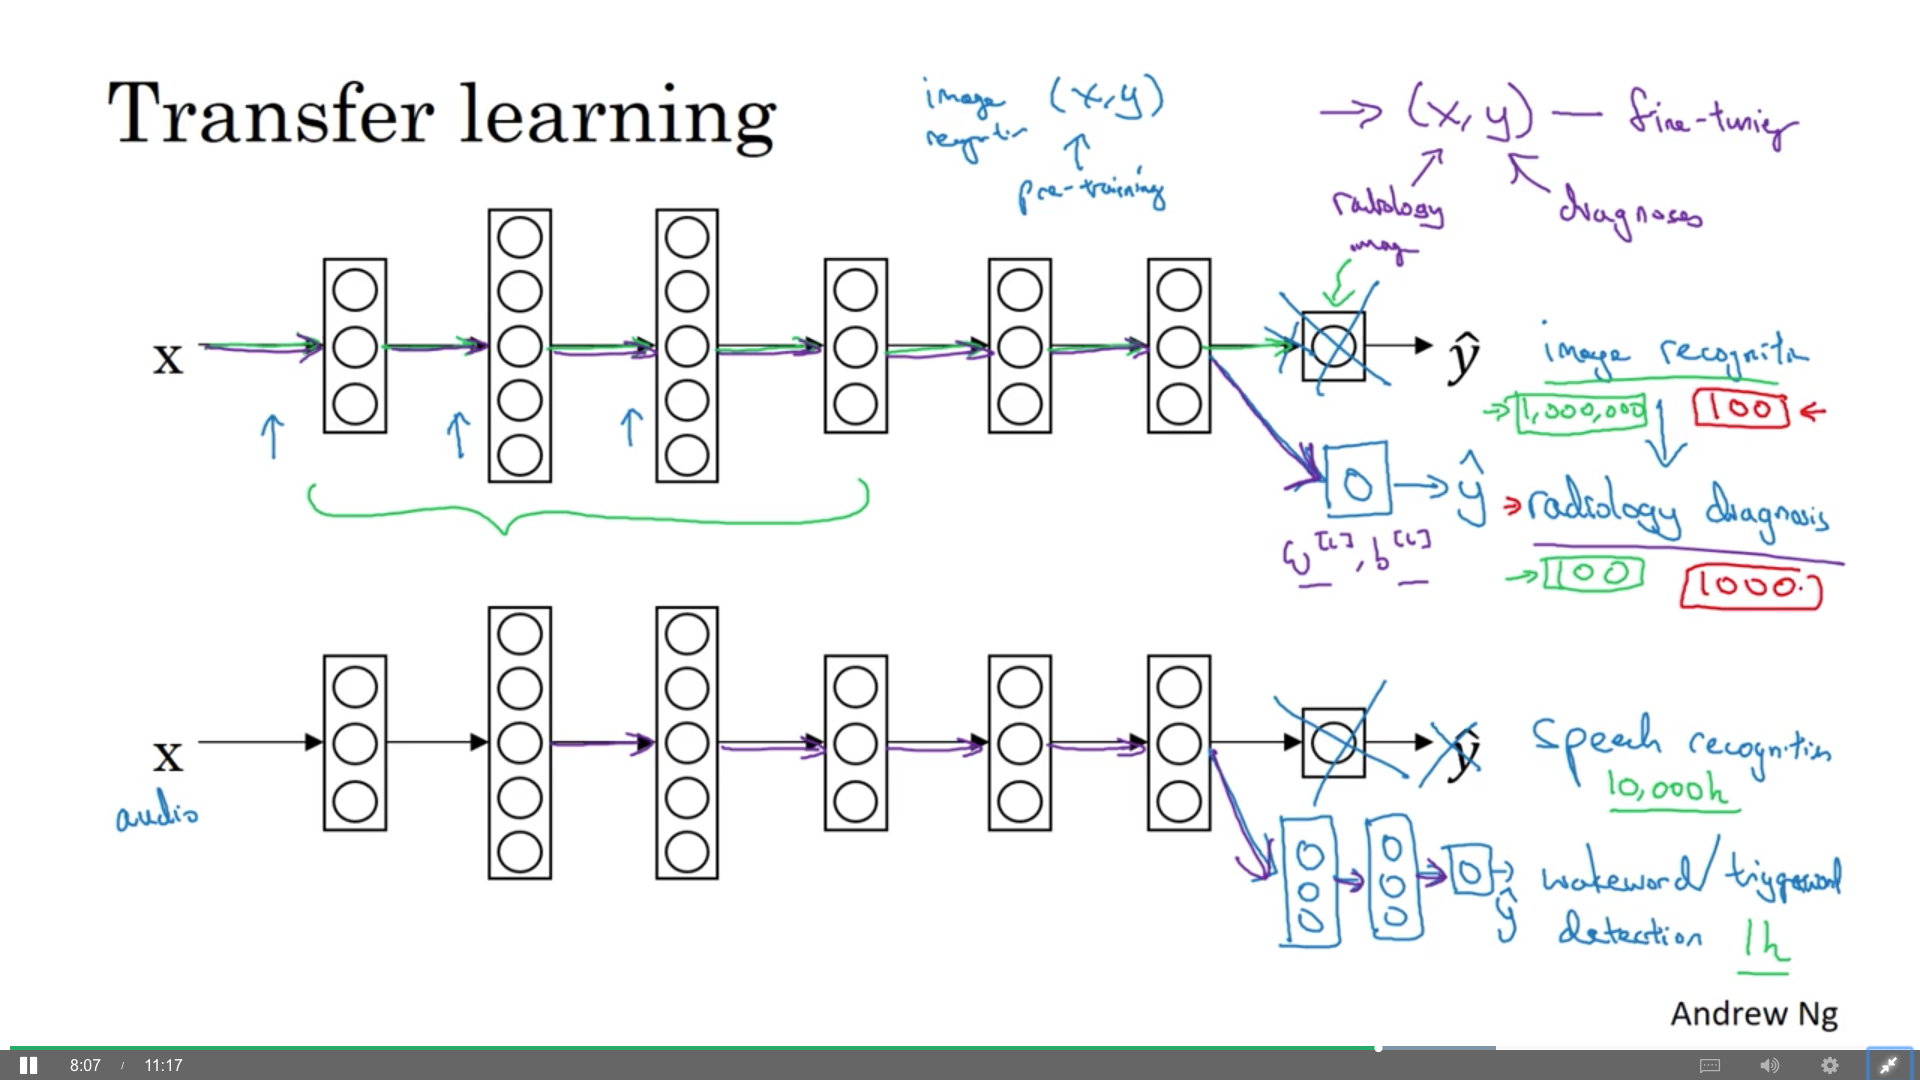 Transfer learning
image (x,y)
pre-training
→ (x,y) — fine-tuning
radiology
diagnoses
x
ŷ
image recognition
→ 1,000,000 100 ←
ŷ → radiology diagnosis
w[L], b[L]
→ 100 1000
x
audio
ŷ
Speech recognition
10,000h
wakeword/triggerword
ŷ
detection 1h
Andrew Ng
8:07 / 11:17